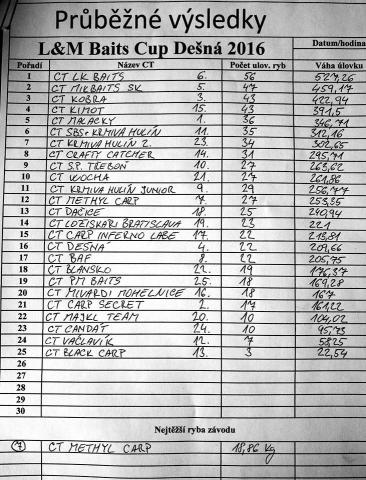 Průběžné výsledky
L&M Baits Cup Dešná 2016 Datum/hodina
Pořadí Název CT Počet ulov. ryb Váha úlovku
1 CT LK BAITS 6. 56 527,26
2 CT MIKBAITS SK 5. 47 459,17
3 CT KOBRA 3. 43 422,94
4 CT KIMOT 15. 43 391,5
5 CT MALACKY 1. 36 346,71
6 CT SBS+KRMIVA HULÍN 11. 35 312,16
7 CT KRMIVA HULÍN 2. 23. 34 302,65
8 CT CRAFTY CATCHER 14. 31 295,71
9 CT S.P. TŘEBOŇ 10. 27 263,62
10 CT KUCHA 21. 27 261,86
11 CT KRMIVA HULÍN JUNIOR 9. 29 256,77
12 CT METHYL CARP 7 27 253,35
13 CT DAČICE 18. 25 240,94
14 CT LOZISKARI BRATISLAVA 19. 23 221
15 CT CARP INFERNO LABE 17. 22 213,81
16 CT DESNÁ 4. 22 209,66
17 CT BAF 8. 22 205,75
18 CT BLANSKO 22. 19 176,37
19 CT PM BAITS 25. 18 169,28
20 CT MIVARDI MOHELNICE 16. 18 167
21 CT CARP SECRET 2. 17 161,22
22 CT MAJKL TEAM 20. 10 104,02
23 CT CANDÁT 24. 10 95,73
24 CT VAČLAVIK 12. 7 58,25
25 CT BLACK CARP 13. 3 22,54
26
27
28
29
30
Nejtěžší ryba závodu
7 CT METHYL CARP 18,86 kg